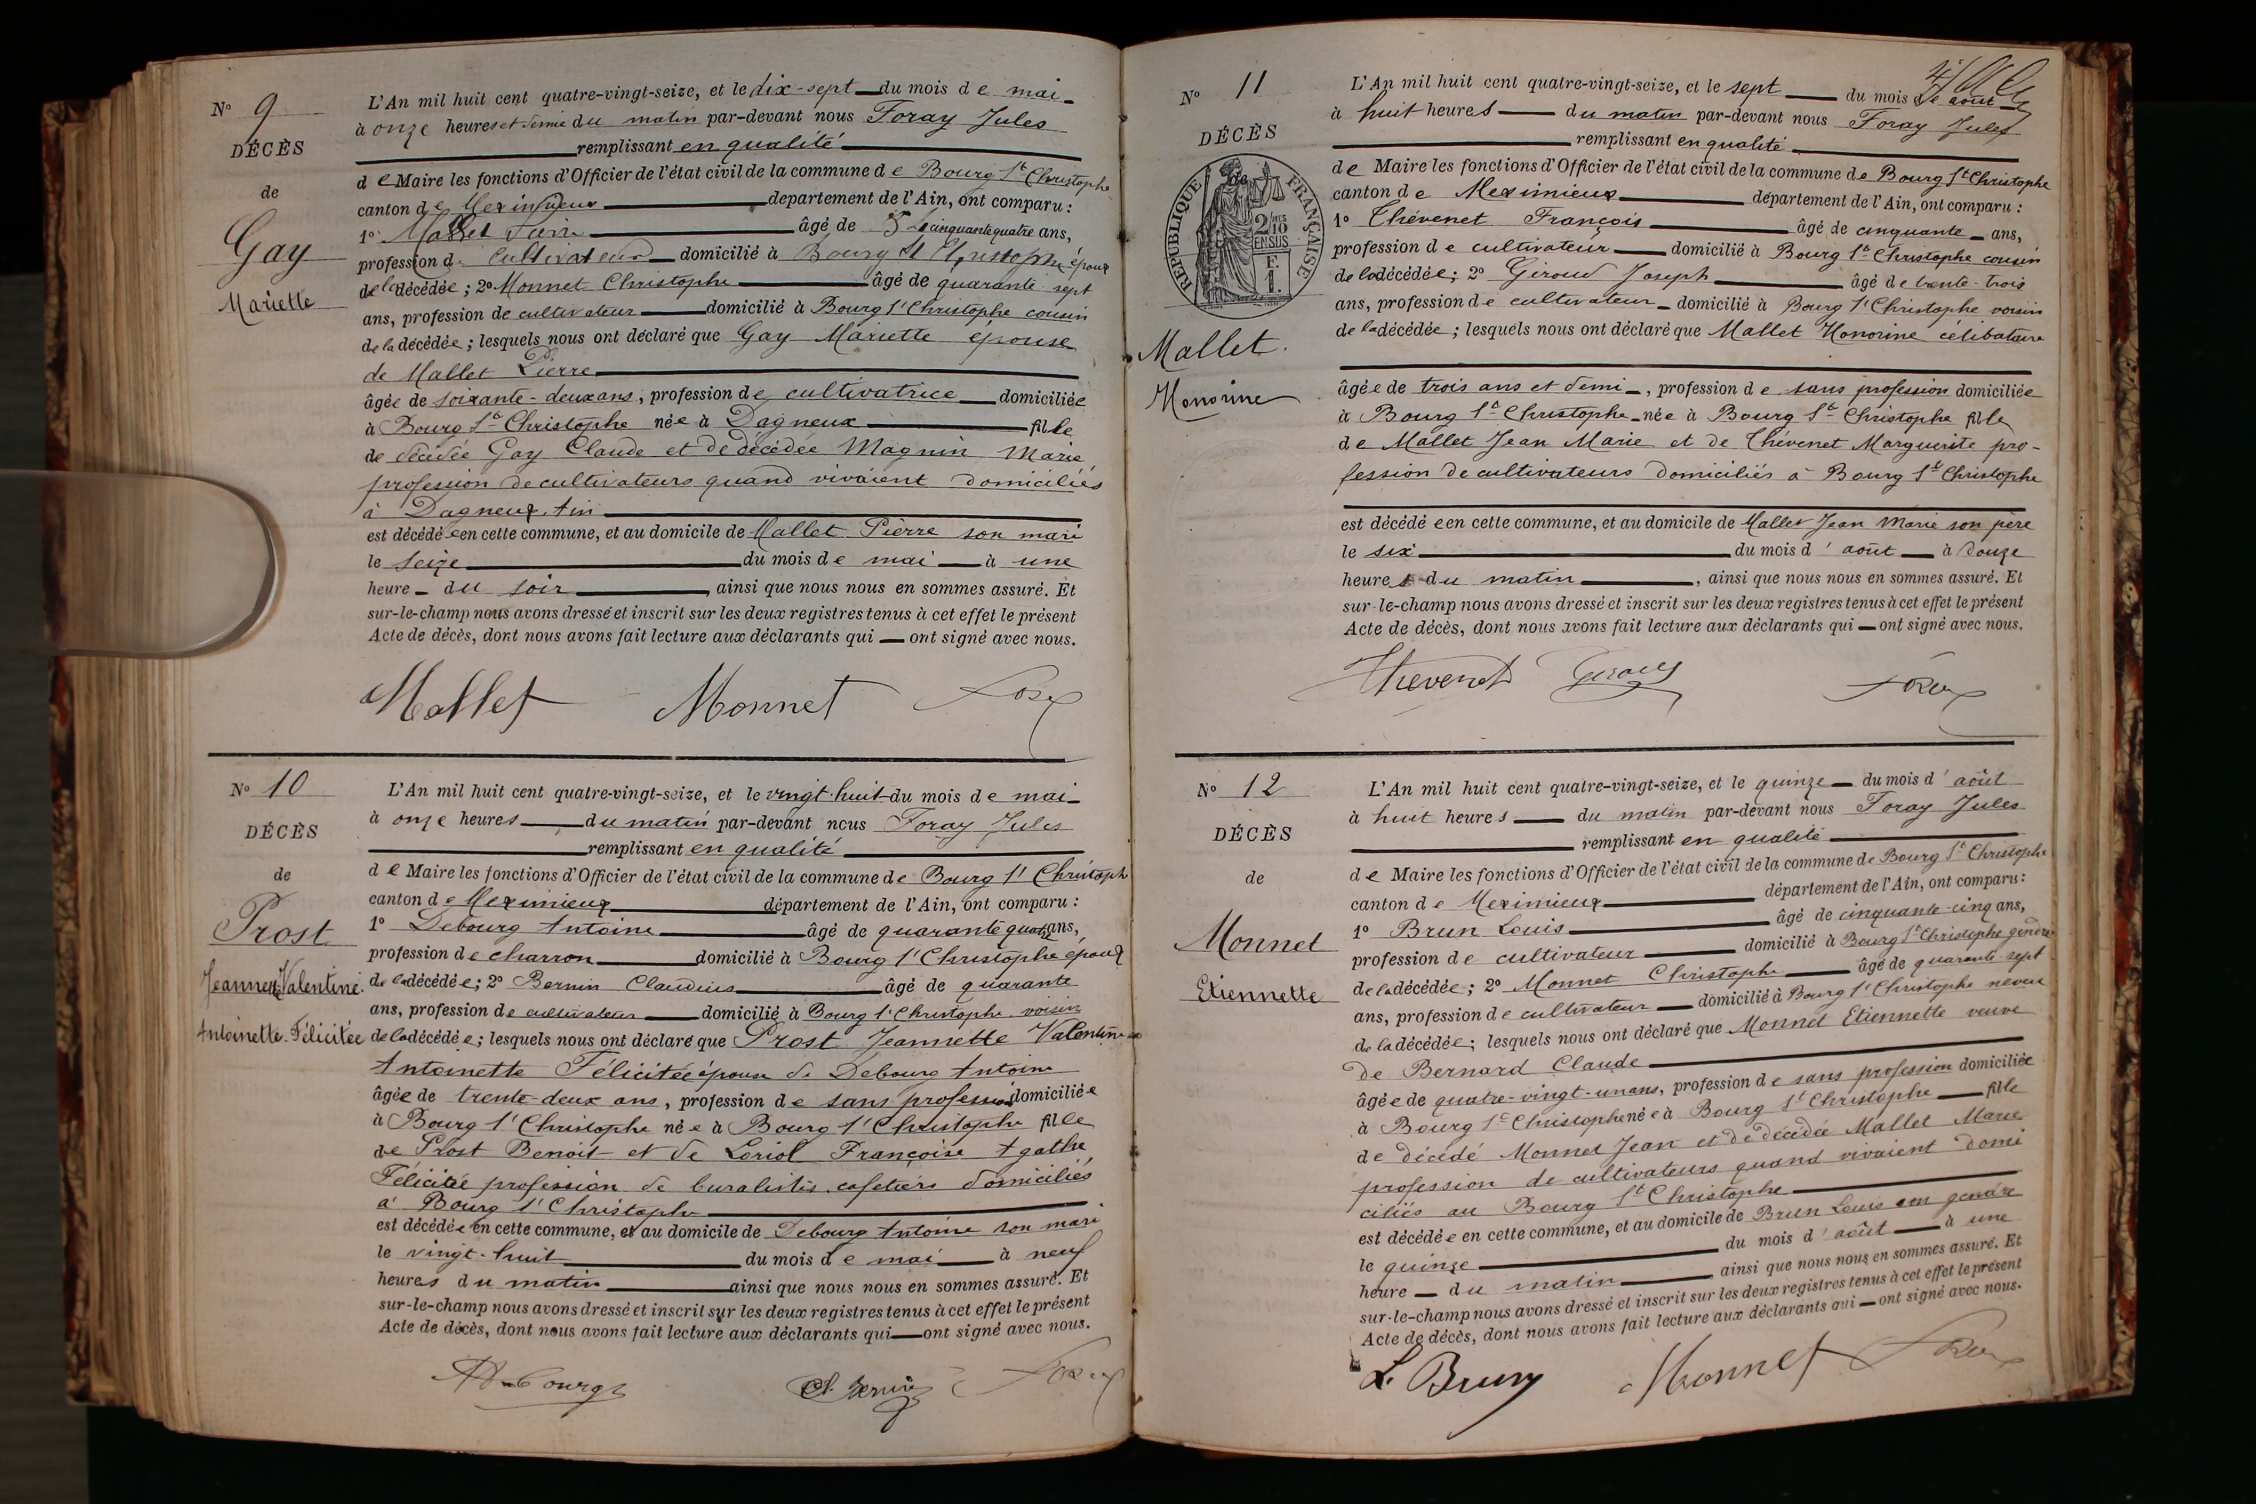 N° 9
DÉCÈS
de
Gay
Mariette
L'An mil huit cent quatre-vingt-seize, et le dix-sept du mois de mai
à onze heures et demie du matin par-devant nous Foray Jules
remplissant en qualité
de Maire les fonctions d'Officier de l'état civil de la commune de Bourg St Christophe
canton de Meximieux département de l'Ain, ont comparu :
1° Mallet âgé de 54 cinquante quatre ans,
profession de cultivateur domicilié à Bourg St Christophe époux
de la décédée ; 2° Monnet Christophe âgé de quarante sept
ans, profession de cultivateur domicilié à Bourg St Christophe cousin
de la décédée ; lesquels nous ont déclaré que Gay Mariette épouse
de Mallet Pierre
âgée de soixante-deux ans, profession de cultivatrice domiciliée
à Bourg St Christophe née à Dagneux fille
de décédé Gay Claude et de décédée Magnin Marie
profession de cultivateurs quand vivaient domiciliés
à Dagneux, Ain
est décédée en cette commune, et au domicile de Mallet Pierre son mari
le seize du mois de mai à une
heure du soir, ainsi que nous nous en sommes assuré. Et
sur-le-champ nous avons dressé et inscrit sur les deux registres tenus à cet effet le présent
Acte de décès, dont nous avons fait lecture aux déclarants qui ont signé avec nous.
Mallet Monnet Foray
N° 10
DÉCÈS
de
Prost
Jeannette Valentine
Antoinette Félicitée
L'An mil huit cent quatre-vingt-seize, et le vingt-huit du mois de mai
à onze heures du matin par-devant nous Foray Jules
remplissant en qualité
de Maire les fonctions d'Officier de l'état civil de la commune de Bourg St Christophe
canton de Meximieux département de l'Ain, ont comparu :
1° Debourg Antoine âgé de quarante quatre ans,
profession de charron domicilié à Bourg St Christophe époux
de la décédée ; 2° Bernin Claudius âgé de quarante
ans, profession de cultivateur domicilié à Bourg St Christophe voisin
de la décédée ; lesquels nous ont déclaré que Prost Jeannette Valentine
Antoinette Félicitée épouse de Debourg Antoine
âgée de trente-deux ans, profession de sans profession domiciliée
à Bourg St Christophe née à Bourg St Christophe fille
de Prost Benoit et de Loriol Françoise Agathe
Félicitée profession de buralistes cafetiers domiciliés
à Bourg St Christophe
est décédée en cette commune, et au domicile de Debourg Antoine son mari
le vingt-huit du mois de mai à neuf
heures du matin ainsi que nous nous en sommes assuré. Et
sur-le-champ nous avons dressé et inscrit sur les deux registres tenus à cet effet le présent
Acte de décès, dont nous avons fait lecture aux déclarants qui ont signé avec nous.
Debourg Cl. Bernin Foray
N° 11
DÉCÈS
de
RÉPUBLIQUE FRANÇAISE
2/10 EN SUS
F. 1.
Mallet
Honorine
L'An mil huit cent quatre-vingt-seize, et le sept du mois de août
à huit heures du matin par-devant nous Foray Jules
remplissant en qualité
de Maire les fonctions d'Officier de l'état civil de la commune de Bourg St Christophe
canton de Meximieux département de l'Ain, ont comparu :
1° Thévenet François âgé de cinquante ans,
profession de cultivateur domicilié à Bourg St Christophe cousin
de la décédée ; 2° Giroud Joseph âgé de trente-trois
ans, profession de cultivateur domicilié à Bourg St Christophe voisin
de la décédée ; lesquels nous ont déclaré que Mallet Honorine célibataire
âgée de trois ans et demi, profession de sans profession domiciliée
à Bourg St Christophe née à Bourg St Christophe fille
de Mallet Jean Marie et de Thévenet Marguerite pro-
fession de cultivateurs domiciliés à Bourg St Christophe
est décédée en cette commune, et au domicile de Mallet Jean Marie son père
le six du mois d'août à douze
heures du matin, ainsi que nous nous en sommes assuré. Et
sur-le-champ nous avons dressé et inscrit sur les deux registres tenus à cet effet le présent
Acte de décès, dont nous avons fait lecture aux déclarants qui ont signé avec nous.
Thevenet Giroud Foray
N° 12
DÉCÈS
de
Monnet
Etiennette
L'An mil huit cent quatre-vingt-seize, et le quinze du mois d'août
à huit heures du matin par-devant nous Foray Jules
remplissant en qualité
de Maire les fonctions d'Officier de l'état civil de la commune de Bourg St Christophe
canton de Meximieux département de l'Ain, ont comparu :
1° Brun Louis âgé de cinquante-cinq ans,
profession de cultivateur domicilié à Bourg St Christophe gendre
de la décédée ; 2° Monnet Christophe âgé de quarante-sept
ans, profession de cultivateur domicilié à Bourg St Christophe neveu
de la décédée ; lesquels nous ont déclaré que Monnet Etiennette veuve
de Bernard Claude
âgée de quatre-vingt-un ans, profession de sans profession domiciliée
à Bourg St Christophe née à Bourg St Christophe fille
de décédé Monnet Jean et de décédée Mallet Marie
profession de cultivateurs quand vivaient domi
ciliés au Bourg St Christophe
est décédée en cette commune, et au domicile de Brun Louis son gendre
le quinze du mois d'août à une
heure du matin, ainsi que nous nous en sommes assuré. Et
sur-le-champ nous avons dressé et inscrit sur les deux registres tenus à cet effet le présent
Acte de décès, dont nous avons fait lecture aux déclarants qui ont signé avec nous.
L. Brun Monnet Foray